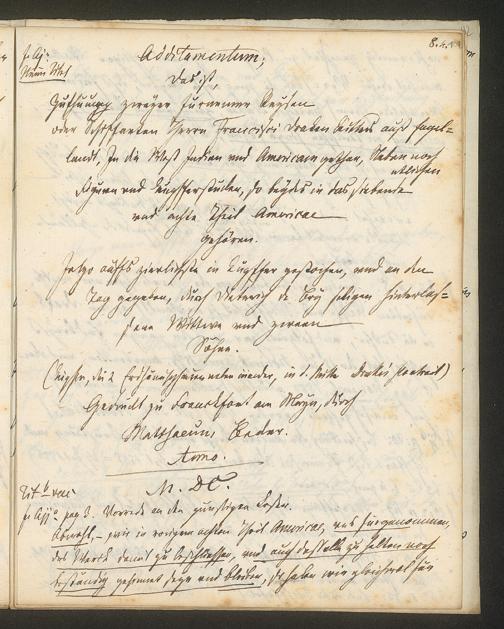 Additamentum;
Das ist,
zweyer fürnemer Reysen
oder Schiffarten Herrn Francisci Draken Ritters auß Engel=
landt, In die West Indien und Americam gethan, Neben noch
etlichen
Figuren und Kupfferstücken, so beydes in das siebende
und achte Theil Americae
gehören.
auffs zierlichste in Kupffer gestochen, und an den
Tag gegeben, durch Dieterich de Bry seligen hinterlas=
sene Wittwe und zween
Söhne.
in d. Mitte Drake's Portrait)
Gedruckt zu Franckfort am Mayn, durch
Matthaeum Becker.
Anno.
M. DC.
pag 2. Vorrede an den günstigen Leser.
Obwohl wir in vorigem achten Theil Americae, uns fürgenommen,
das Werck damit zu beschliessen, und auch dasselb zu halten noch
beständig gesinnet seyn und bleiben, So haben wir gleichwol